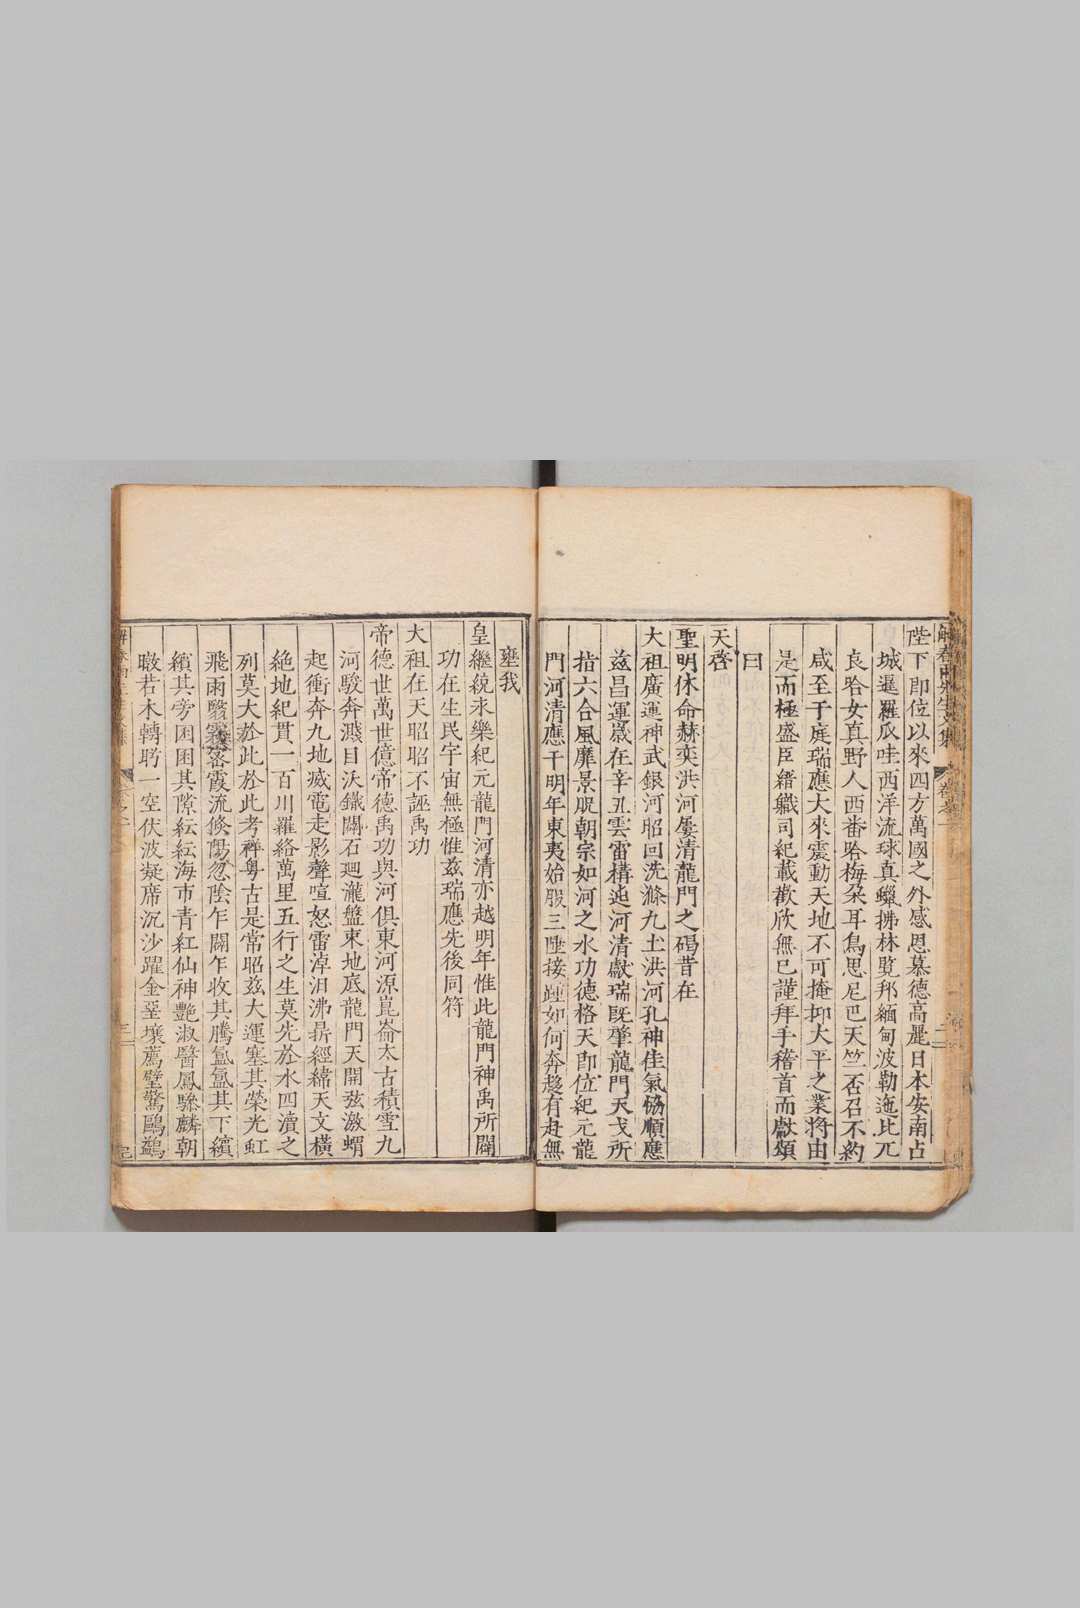 陛下即位以來四方萬國之外感恩慕德高麗日本安南占
城暹羅瓜哇西洋流球真臘拂林覧邦緬甸波勒迤北兀
良哈女真野人西番哈梅朶耳鳥思尼巴天竺否召不約
咸至于庭瑞應大來震動天地不可掩抑大平之業將由
是而極盛臣縉職司紀載歡欣無已謹拜手稽首而獻頌
曰
天啓
聖明休命赫奕洪河屢清龍門之碣昔在
大祖廣運神武銀河昭回洗滌九土洪河孔神佳氣恊順應
兹昌運嵗在辛丑雲雷構迍河清獻瑞既肇龍門天戈所
指六合風靡景從朝宗如河之水功德格天即位紀元龍
門河清應千明年東夷始服三陲接踵如何奔趨有赴無
壅我
皇繼統永樂紀元龍門河清亦越明年惟此龍門神禹所闢
功在生民宇宙無極惟兹瑞應先後同符
大祖在天昭昭不誣禹功
帝德世萬世億帝德禹功與河俱東河源崑崙太古積雪九
河駿奔濺目沃鐵闢石迴瀧盤束地底龍門天開兹激蝟
起衝奔九地滅電走影聲喧怒雷淖汨沸昻經緯天文橫
絶地紀貫一百川羅絡萬里五行之生莫先於水四瀆之
列莫大於此於此考祥粤古是常昭兹大運塞其榮光虹
飛雨驟霧落霞流倏陽忽陰乍闢乍收其騰氳氳其下繽
繽其旁囷囷其隙紜紜海市青紅仙神艷淑醫鳳驂麟朝
暾若木轉眄一空伏波凝席沉沙躍金堊壤薦璧驚鷗鷁
解春雨先生文集
卷之一
二
卷之一
三